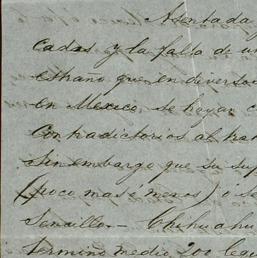 Asentada
cadas y la falta de un
estraño que en diversos
en Mexico, se hayan
contradictorios al
Sin embargo que su
(poco mas ó menos) ó
Sencillo— Chihuahu
termino medio 200 legu